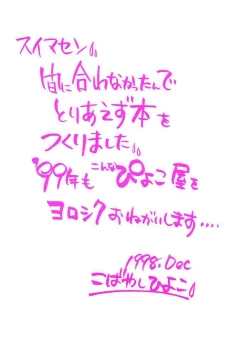 スイマセン。。
間に合わなかったんで
とりあえず本を
つくりました。。
'99年もこんなぴよこ屋を
ヨロシクおねがいします....
1998.Dec
こばやしひよこ。